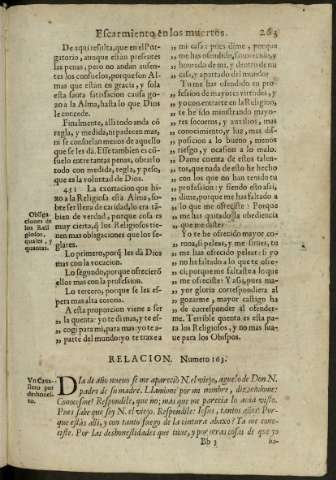 Escarmiento en los muertos. 263
De aqui resulta, que en el Purgatorio,
aunque estàn presentes
las penas, pero no andan ausentes
los consuelos, porque son Almas
que están en gracia, y sola
esta santa satisfacion causa gozo
a la Alma, hasta lo que Dios
le concede.
Finalmente, alli todo anda cõ
regla, y medida, ni padecen mas,
ni se consuelan menos de aquello
que se les dà. Este tambien es cõsuelo
entre tantas penas, obrarlo
todo con medida, regla, y peso,
que es la voluntad de Dios.
451 La exortacion que hizo
a la Religiosa esta Alma, sobre
ser llena de caridad, lo era tãbien
de verdad, porque cosa es
muy cierta, q los Religiosos tienen
mas obligaciones que los seglares.
Obligaciones de
los Religiosos,
quales, y
quantas.
Lo primero, porq̃ les dà Dios
mas con la vocacion.
Lo segundo, porque ofrecierõ
ellos mas con la profession.
Lo tercero, porque se les espera
mas alta corona.
A esta proporcion viene a ser
la quenta: yo te di mas, y te escogi
para mi, para mas: yo te aparte
del mundo, yo te traxe a
„ mi casa: pues dime, porque
„ me has ofendido, favorecido, y
„ honrado de mi, y dentro de mi
„ casa, y apartado del mundo?
„ Tu me has ofendido tu profession
„ de mayores virtudes, y
„ yo con entrarte en la Religion,
„ te he ido ministrando mayores
„ socorros, y auxilios, mas
„ conocimiento, y luz, mas disposicion
„ a lo bueno, menos
„ riesgo, y ocasion a lo malo.
„ Dame cuenta de estos talentos,
„ que nada de esto he hecho
„ con los que no han tenido tu
„ profession: y siendo esto assi,
„ dime, porque me has faltado a
„ lo que me ofreciste? Porque
„ me has quitado la obediencia
„ que me diste?
„ Yo te he ofrecido mayor corona,
„ si peleas, y me sirves, tu
„ me has ofrecido pelear: si yo
„ no he faltado a lo que te ofreci,
„ porque me faltaste a lo que
„ me ofreciste? Y assi, pues mayor
„ gloria correspondiera al
„ gozarme, mayor castigo ha
„ de corresponder al ofenderme.
„ Terrible quenta es esta para
„ los Religiosos, y no mas suave
„ para los Obispos.
RELACION. Numero 163.
Dia de Año nuevo se me apareciò N. el viejo, aguelo de Don N.
padre de su madre. Llamòme por mi nombre, diziendome:
Conocesme? Respondile, que no; mas que me parecia le avia visto.
Pues sabe que soy N. el viejo. Respondile: Iesus, tantos años? Porque
estàs assi, y con tanto fuego de la cintura abaxo? Ya me conociste.
Por las deshonestidades que tuve, y por otras cosas de que yo
Bb 3